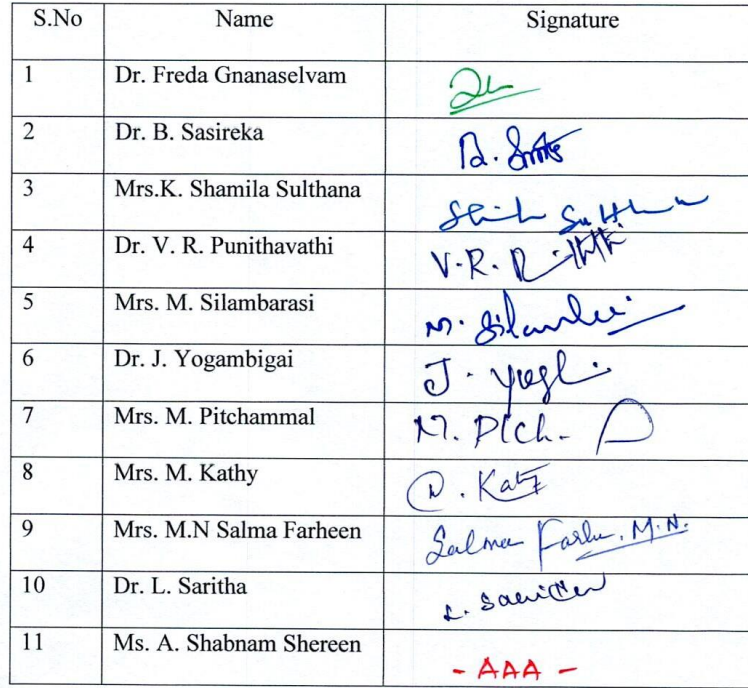 S.No Name Signature
1 Dr. Freda Gnanaselvam
2 Dr. B. Sasireka B.
3 Mrs.K. Shamila Sulthana
4 Dr. V. R. Punithavathi V.R.
5 Mrs. M. Silambarasi M.
6 Dr. J. Yogambigai J.
7 Mrs. M. Pitchammal M. Pich.
8 Mrs. M. Kathy
9 Mrs. M.N Salma Farheen Salma M.N.
10 Dr. L. Saritha L.
11 Ms. A. Shabnam Shereen - AAA -